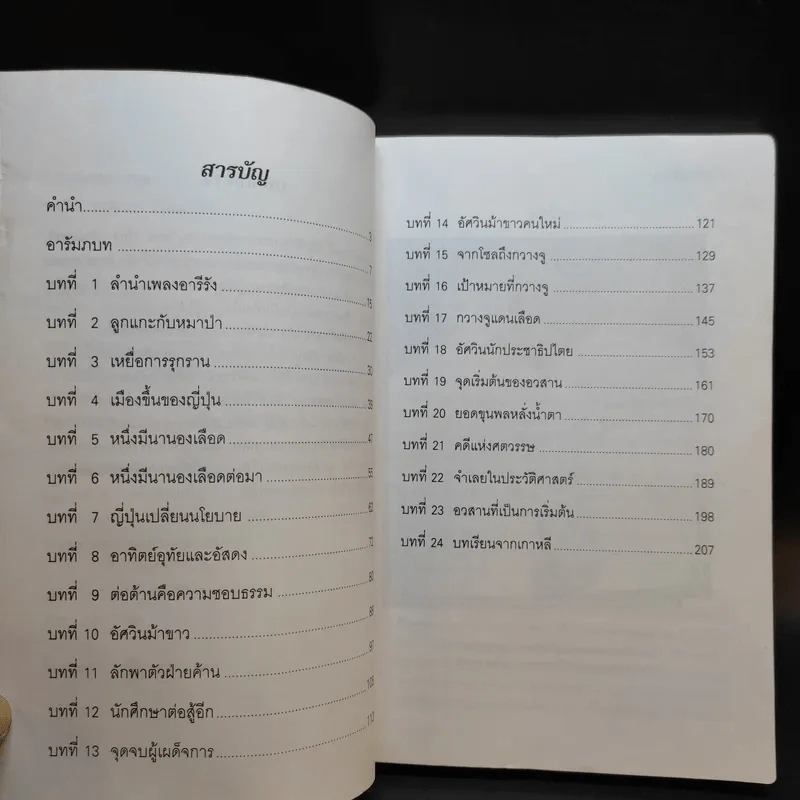 สารบัญ
คำนำ....... 3
อารัมภบท 7
บทที่ 1 ลำนำเพลงอารีรัง 15
บทที่ 2 ลูกแกะกับหมาป่า 22
บทที่ 3 เหยื่อการรุกราน 30
บทที่ 4 เมืองขึ้นของญี่ปุ่น 39
บทที่ 5 หนึ่งมีนานองเลือด 47
บทที่ 6 หนึ่งมีนานองเลือดต่อมา 55
บทที่ 7 ญี่ปุ่นเปลี่ยนนโยบาย 63
บทที่ 8 อาทิตย์อุทัยและอัสดง 72
บทที่ 9 ต่อต้านคือความชอบธรรม 80
บทที่ 10 อัศวินม้าขาว 88
บทที่ 11 ลักพาตัวฝ่ายค้าน 97
บทที่ 12 นักศึกษาต่อสู้อีก 105
บทที่ 13 จุดจบผู้เผด็จการ 113
บทที่ 14 อัศวินม้าขาวคนใหม่ 121
บทที่ 15 จากโซลถึงกวางจู 129
บทที่ 16 เป้าหมายที่กวางจู 137
บทที่ 17 กวางจูแดนเลือด 145
บทที่ 18 อัศวินนักประชาธิปไตย 153
บทที่ 19 จุดเริ่มต้นของอวสาน 161
บทที่ 20 ยอดขุนพลหลั่งน้ำตา 170
บทที่ 21 คดีแห่งศตวรรษ 180
บทที่ 22 จำเลยในประวัติศาสตร์ 189
บทที่ 23 อวสานที่เป็นการเริ่มต้น 198
บทที่ 24 บทเรียนจากเกาหลี 207